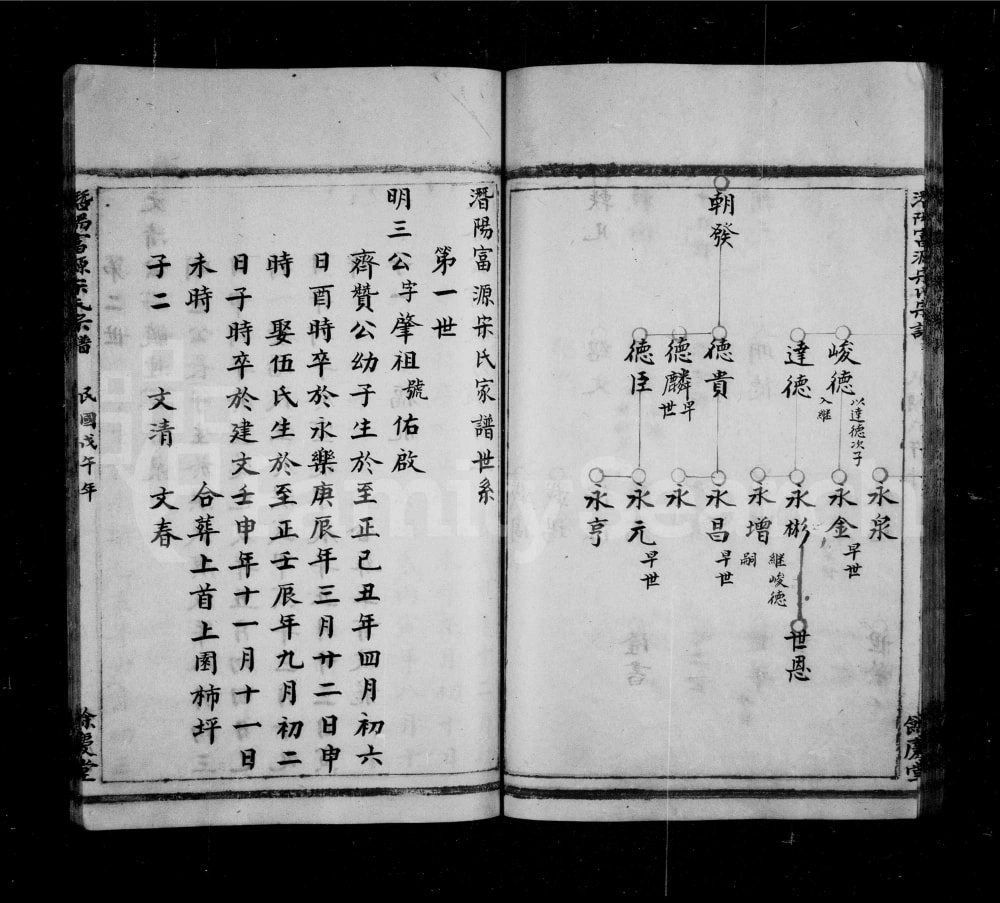 潛陽富源宋氏宗譜
朝發
峻德 以達德次子入繼
達德
德貴
德麟 早世
德臣
永泉
永金 早世
永彬
永增 繼峻德嗣
永昌 早世
永
永元 早世
永亨
世恩
餘慶堂
潛陽富源宋氏家譜世系
第一世
明三公字肇祖號佑啟
齊贊公幼子生於至正己丑年四月初六
日酉時卒於永樂庚辰年三月廿二日申
時 娶伍氏生於至正壬辰年九月初二
日子時卒於建文壬申年十一月十一日
未時 合葬上首上園柿坪
子二 文清 文春
潛陽富源宋氏宗譜 民國戊午年 餘慶堂